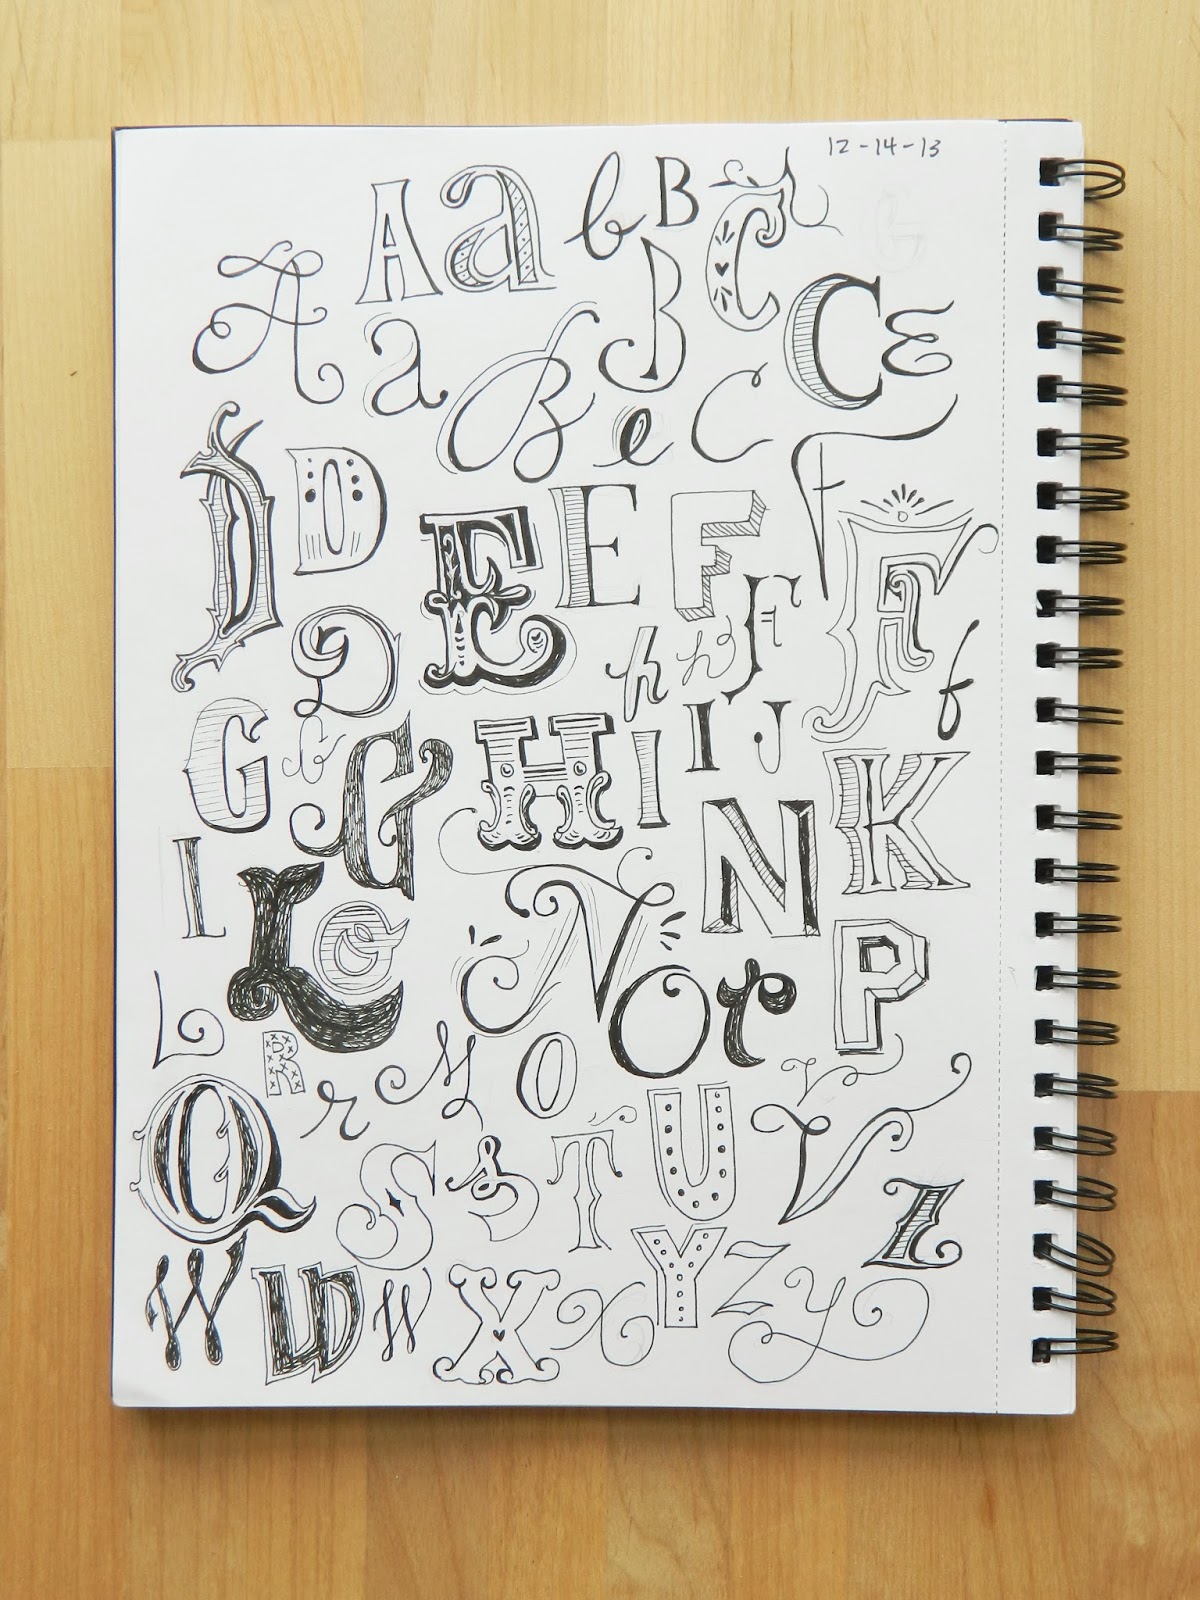 12-14-13
A a b B C
A a B B C e
B e C F
D D E E F F
D h h F f
G G G H I I J K
I L e N o r N P
L R r M O V
Q S S T U V Z
W W W X x Y Z y